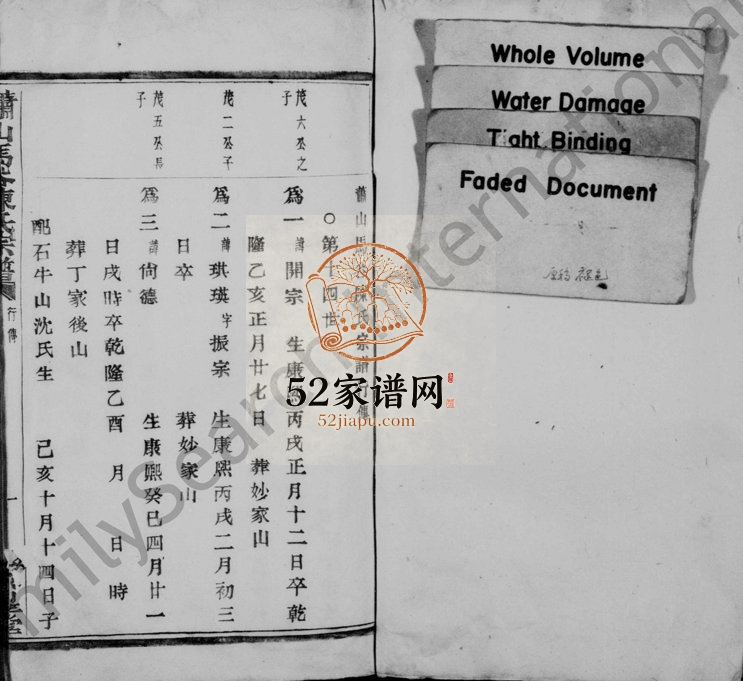 Whole Volume
Water Damage
Tight Binding
Faded Document
蕭山馬 陳氏宗譜行傳
〇第十四世
茂六公之子
為一 諱開宗 生康熙丙戌正月十二日卒乾
隆乙亥正月廿七日 葬妙家山
茂二公子
為二 諱琪瑛 字振宗 生康熙丙戌二月初三
日卒 葬妙家山
茂五公長子
為三 諱尙德 生康熙癸巳四月廿一
日戌時卒乾隆乙酉 月 日 時
葬丁家後山
配石牛山沈氏生 己亥十月十四日子
蕭山馬 陳氏宗譜
行傳
一
52家谱网
52jiapu.com
FamilySearch International